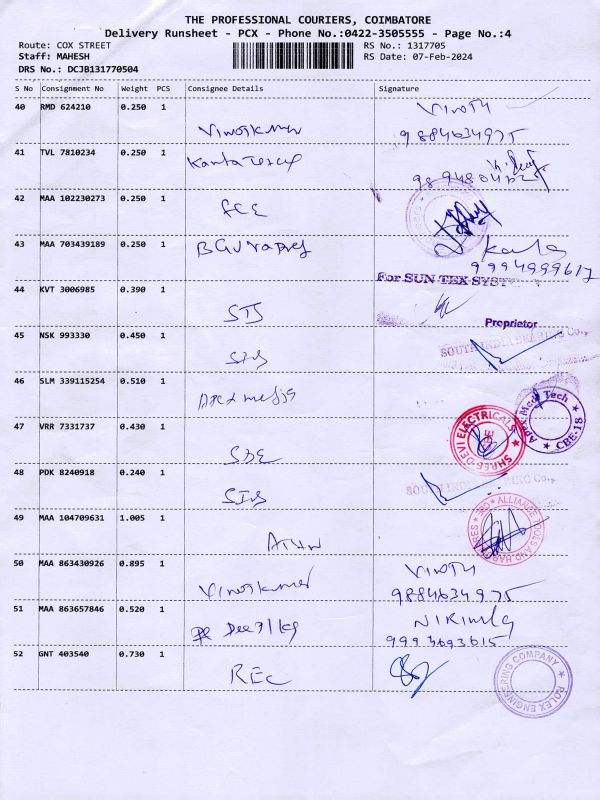 THE PROFESSIONAL COURIERS, COIMBATORE
Delivery Runsheet - PCX - Phone No.:0422-3505555 - Page No.:4
Route: COX STREET RS No.: 1317705
Staff: MAHESH RS Date: 07-Feb-2024
DRS No.: DCJB131770504
S No Consignment No Weight PCS Consignee Details Signature
40 RMD 624210 0.250 1 Vinothkumar Vinoth
9884634975
41 TVL 7810234 0.250 1
42 MAA 102230273 0.250 1
43 MAA 703439189 0.250 1 Kavla
9994999617
For SUN TEX SYST
44 KVT 3006985 0.390 1
Proprietor
45 NSK 993330 0.450 1 SOUTH INDIA BEARING Co.,
46 SLM 339115254 0.510 1 Apex Media
Apex Meda Tech ★ CBE-18 ★
47 VRR 7331737 0.430 1 SDE SHREE DEVI ELECTRICALS ★ CBE ★
48 PDK 8240918 0.240 1 SOUTH INDIA BEARING Co.,
49 MAA 104709631 1.005 1 ★ ALLIANCE TOOLS AND HARDWARES ★ CBE
50 MAA 863430926 0.895 1 Vinothkumar Vinoth
9884634975
51 MAA 863657846 0.520 1
9993693615
52 GNT 403540 0.730 1 REC ROLEX ENGINEERING COMPANY ★